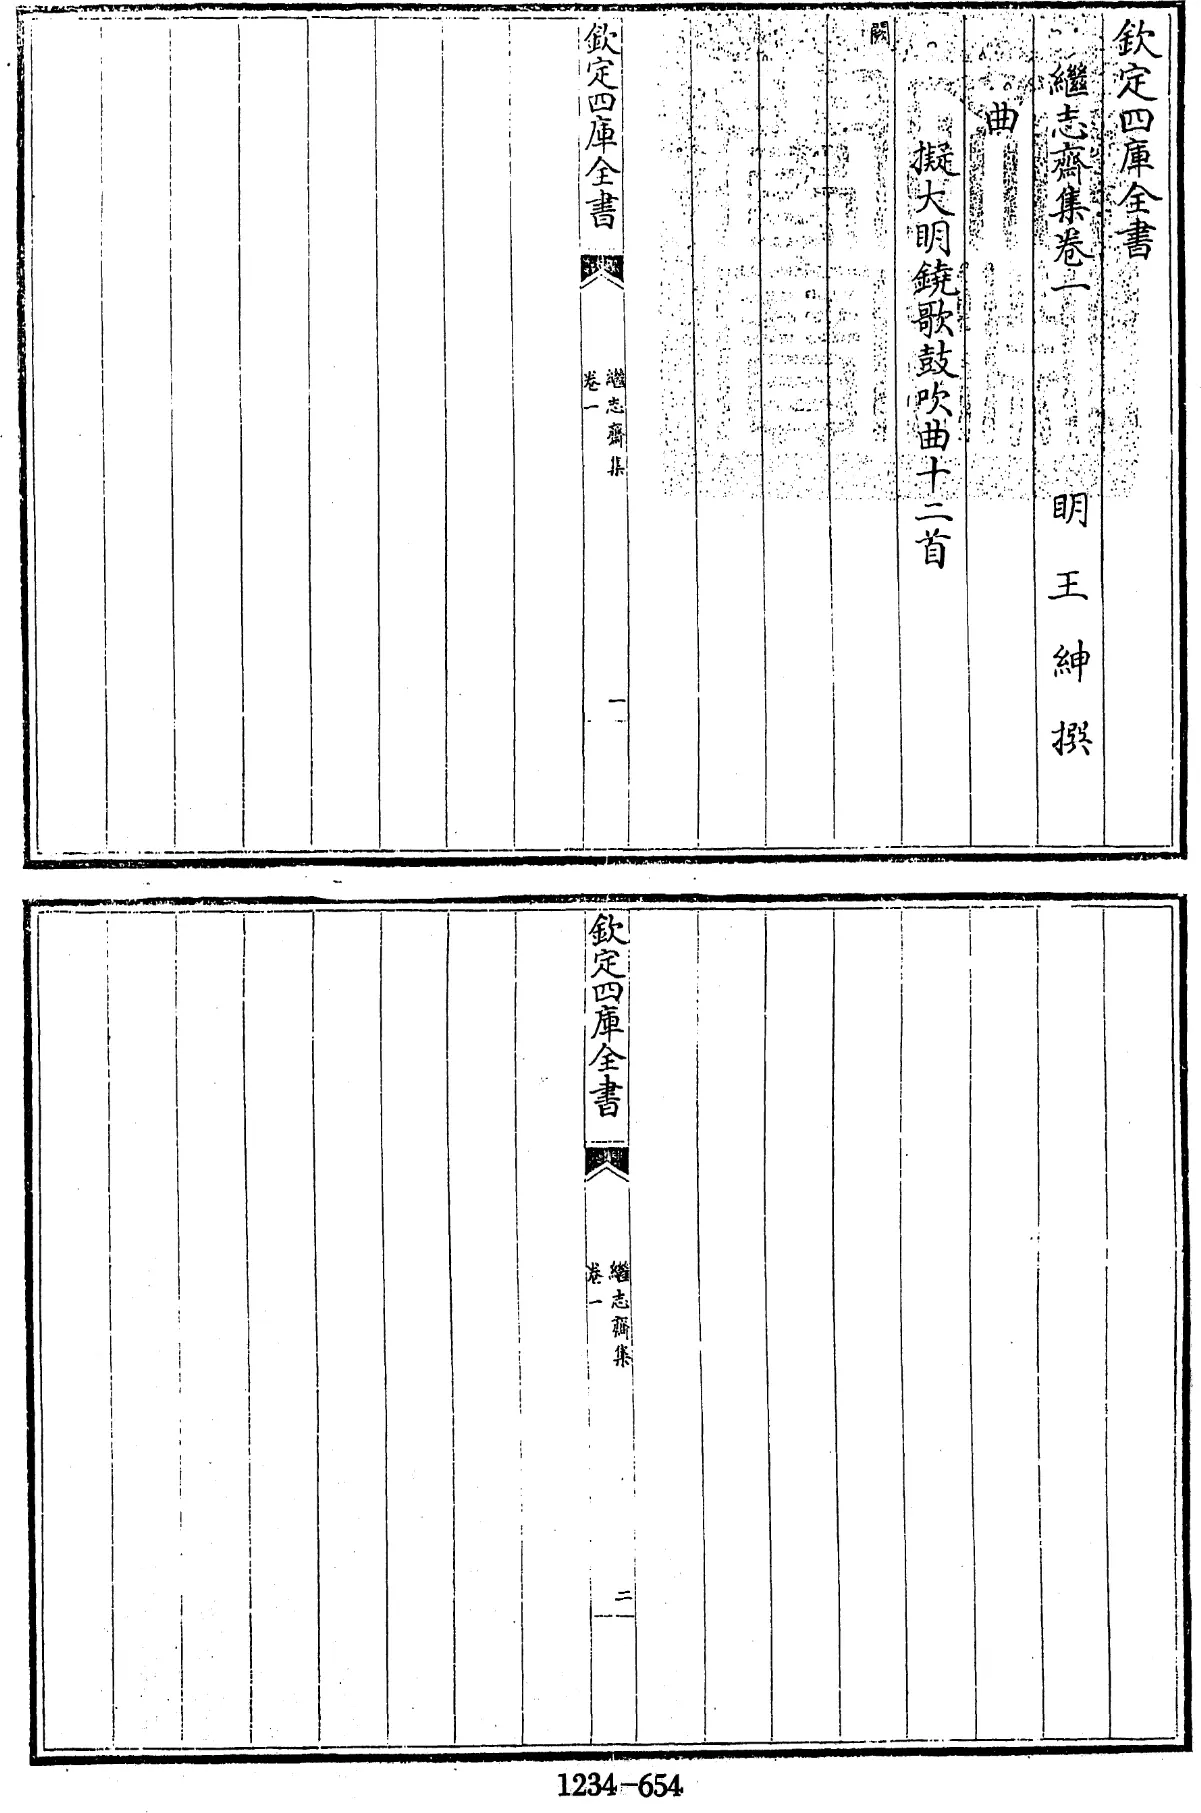 欽定四庫全書
繼志齋集卷一
明王紳撰
曲
擬大明鐃歌鼓吹曲十二首
闕
欽定四庫全書
繼志齋集
卷一
一
欽定四庫全書
繼志齋集
卷一
二
1234-654